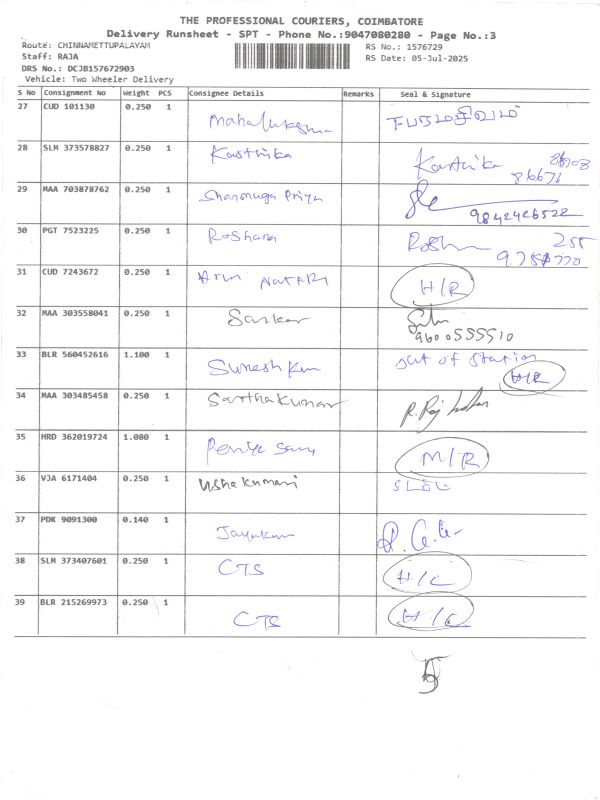 THE PROFESSIONAL COURIERS, COIMBATORE
Delivery Runsheet - SPT - Phone No.:9047080280 - Page No.:3
Route: CHINNAMETTUPALAYAM
RS No.: 1576729
Staff: RAJA
RS Date: 05-Jul-2025
DRS No.: DCJB157672903
Vehicle: Two Wheeler Delivery
S No Consignment No Weight PCS Consignee Details Remarks Seal & Signature
27 CUD 101130 0.250 1 Mahalukshma
28 SLM 373578827 0.250 1 Karthika Karthika
86671
29 MAA 703878762 0.250 1 Shanmuga Priya
9842426522
30 PGT 7523225 0.250 1 Roshara 255
31 CUD 7243672 0.250 1 Arun H/R
32 MAA 303558041 0.250 1 Sankar
9600555510
33 BLR 560452616 1.100 1 Suresh out of station
H/R
34 MAA 303485458 0.250 1 Sasthakumar
35 HRD 362019724 1.080 1 M/R
36 VJA 6171404 0.250 1 Ushakumari
37 PDK 9091300 0.140 1 Jayakum
38 SLM 373407601 0.250 1 CTS H/C
39 BLR 215269973 0.250 1 CTS H/C